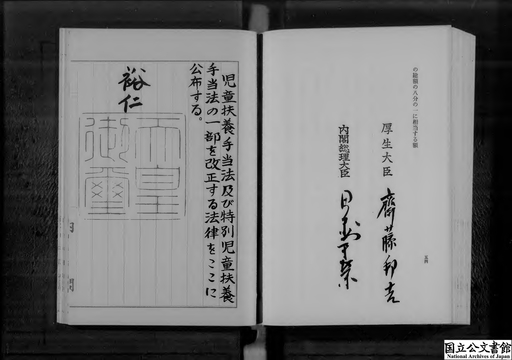 の総額の八分の一に相当する額
厚生大臣 齋藤邦吉
内閣総理大臣 田中角榮
児童扶養手当法及び特別児童扶養
手当法の一部を改正する法律をここに
公布する。
裕仁
天皇
御璽
国立公文書館
National Archives of Japan